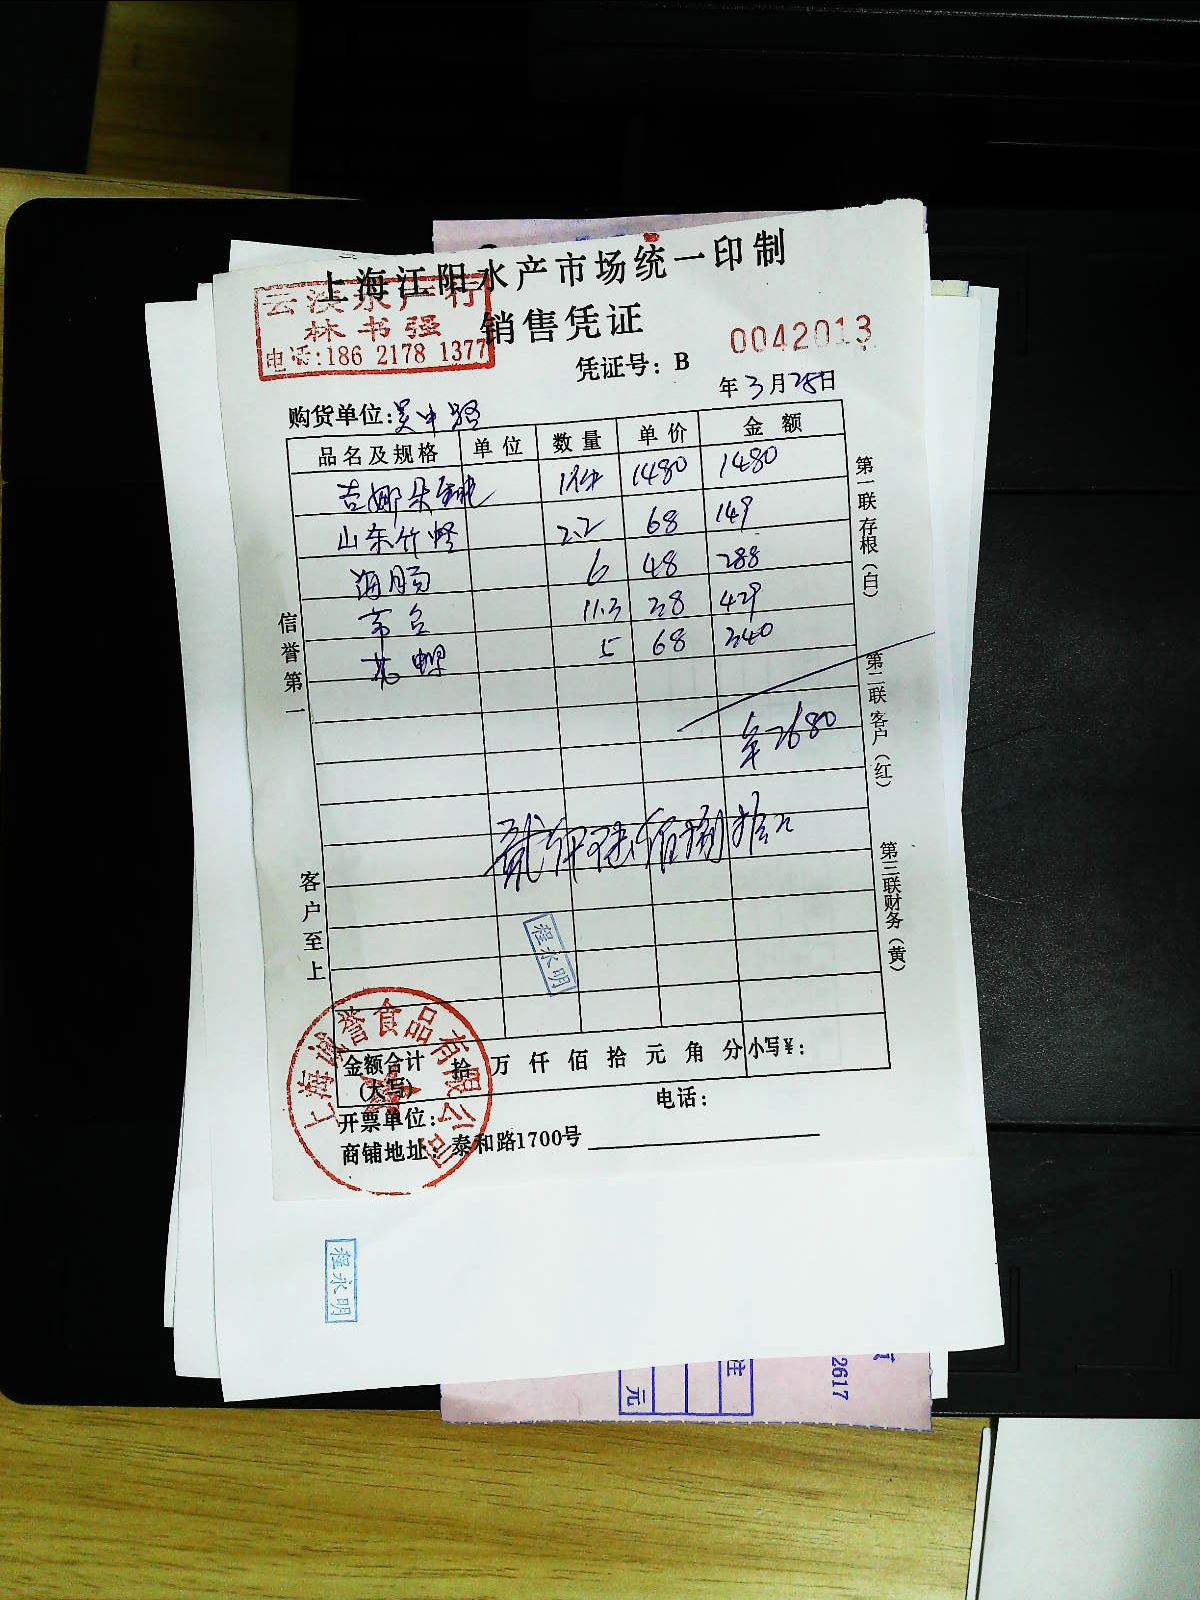 上海江阳水产市场统一印制
云溪水产行
林书强
电话:186 2178 1377
销售凭证
凭证号: B 0042013
年3月25日
购货单位:吴中路
品名及规格 单位 数量 单价 金额
吉娜朵 1只 1480 1480
山东竹蛏 2.2 68 149
海肠 6 48 288
11.3 38 429
花螺 5 68 340
2680
贰仟陆佰捌拾元
程永明
信誉第一
客户至上
第一联存根(白)
第二联客户(红)
第三联财务(黄)
上海诚誉食品有限公司
金额合计(大写) 拾 万 仟 佰 拾 元 角 分 小写¥:
开票单位: 电话:
商铺地址: 泰和路1700号
程永明
元
注
2617